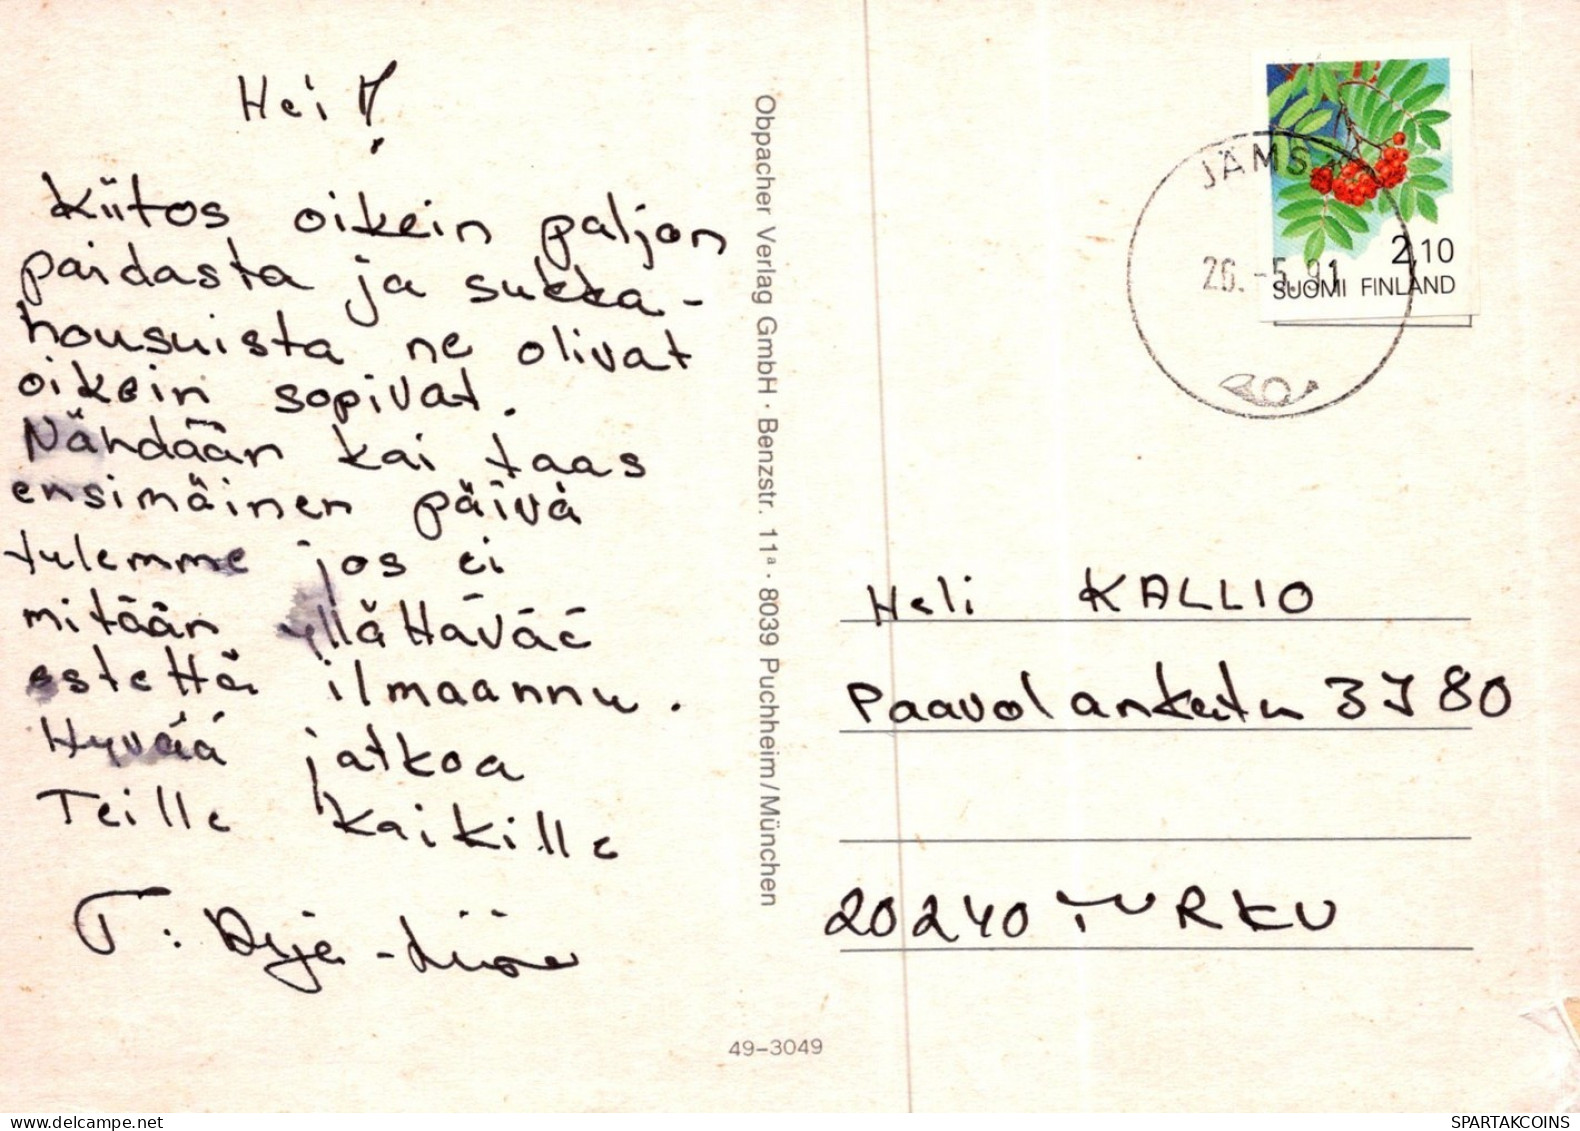 Hei!
Kiitos oikein paljon
paidasta ja sukka-
housuista ne olivat
oikein sopivat.
Nähdään kai taas
ensimäinen päivä
tulemme jos ei
mitään yllättävää
estettä ilmaannu.
Hyvää jatkoa
Teille kaikille
T:
Obpacher Verlag GmbH · Benzstr. 11a · 8039 Puchheim/München
49-3049
JÄMS
26.-5.91
2,10
SUOMI FINLAND
Heli KALLIO
Paavolankatu 3 J 80
20240 TURKU
SPARTAKCOINS